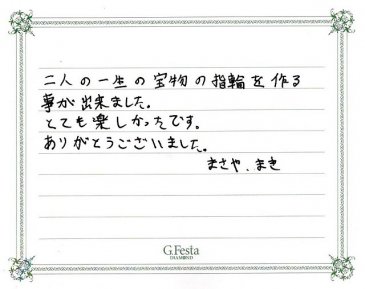 二人の一生の宝物の指輪を作る
事が出来ました。
とても楽しかったです。
ありがとうございました。
まさや、まき
G.Festa
DIAMOND